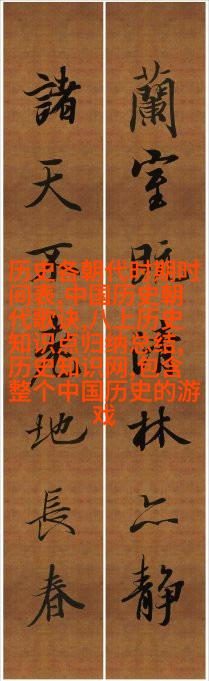 蘭室林亦静
諸天不地長春
历史各朝代时期时
间表,中国历史朝
代歌诀,八上历史
知识点归纳总结,
历史知识网,包含
整个中国历史的游
戏